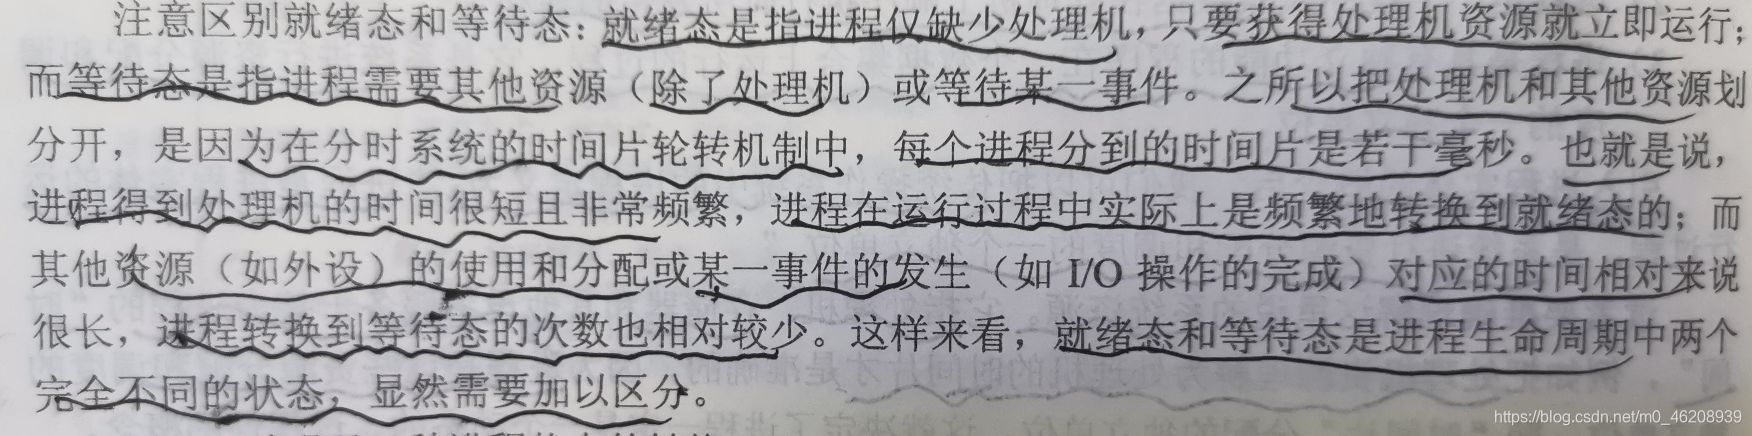 注意区别就绪态和等待态：就绪态是指进程仅缺少处理机，只要获得处理机资源就立即运行；
而等待态是指进程需要其他资源（除了处理机）或等待某一事件。之所以把处理机和其他资源划
分开，是因为在分时系统的时间片轮转机制中，每个进程分到的时间片是若干毫秒。也就是说，
进程得到处理机的时间很短且非常频繁，进程在运行过程中实际上是频繁地转换到就绪态的；而
其他资源（如外设）的使用和分配或某一事件的发生（如 I/O 操作的完成）对应的时间相对来说
很长，进程转换到等待态的次数也相对较少。这样来看，就绪态和等待态是进程生命周期中两个
完全不同的状态，显然需要加以区分。
https://blog.csdn.net/m0_46208939